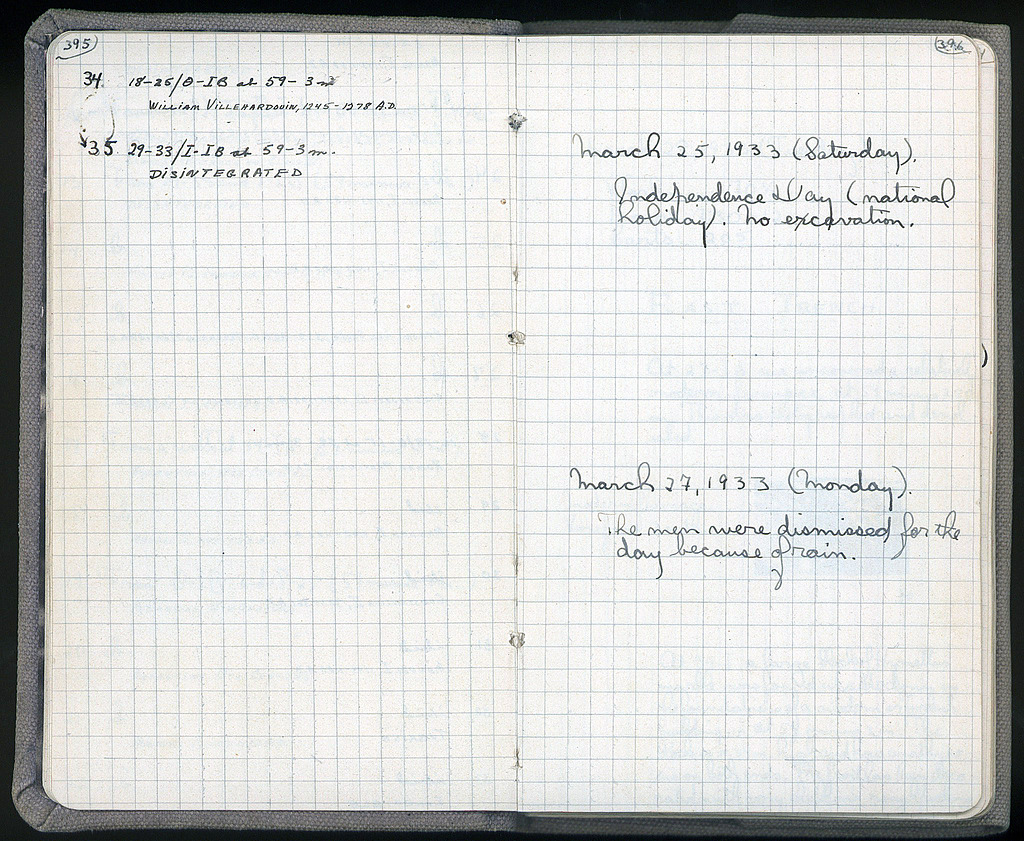 395
34 18-25/Θ-IB at 59-3m
WILLIAM VILLEHARDOUIN, 1245-1278 A.D.
35 29-33/I-IB at 59-3m.
DISINTEGRATED
396
March 25, 1933 (Saturday).
Independence Day (national
holiday). No excavation.
March 27, 1933 (Monday).
The men were dismissed for the
day because of rain.